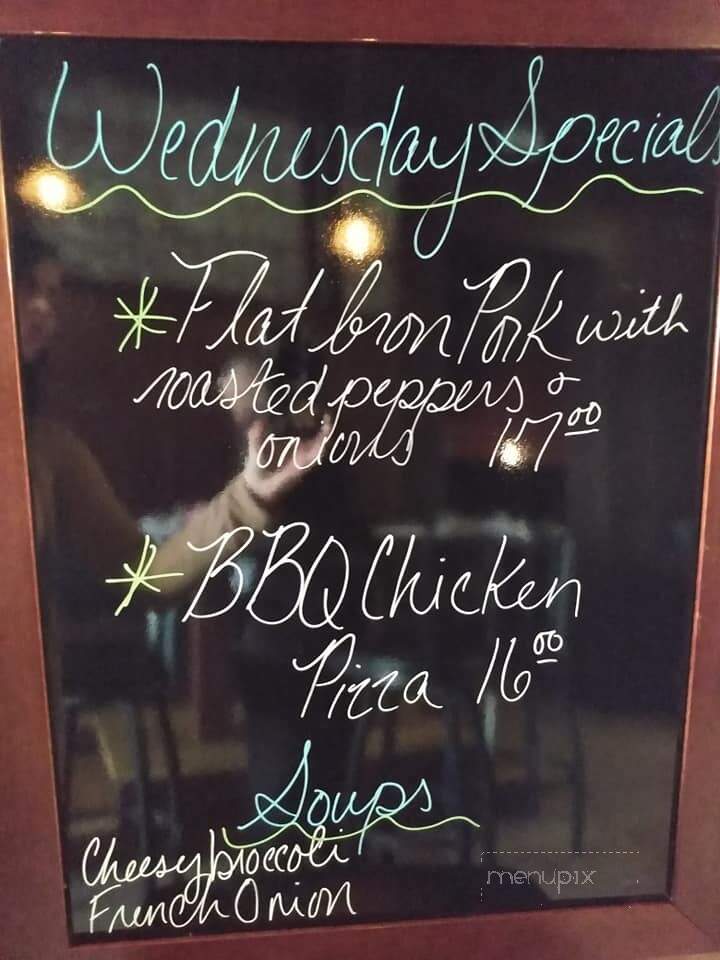 Wednesday Specials
* Flat Iron Pork with
roasted peppers &
onions 17.00
* BBQ Chicken
Pizza 16.00
Soups
Cheesy broccoli
French Onion
menupix